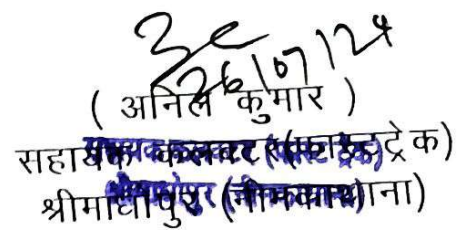 26/07/24
( अनिल कुमार )
सहायक कलक्टर (फास्ट ट्रेक)
श्रीमाधोपुर (नीमकाथाना)